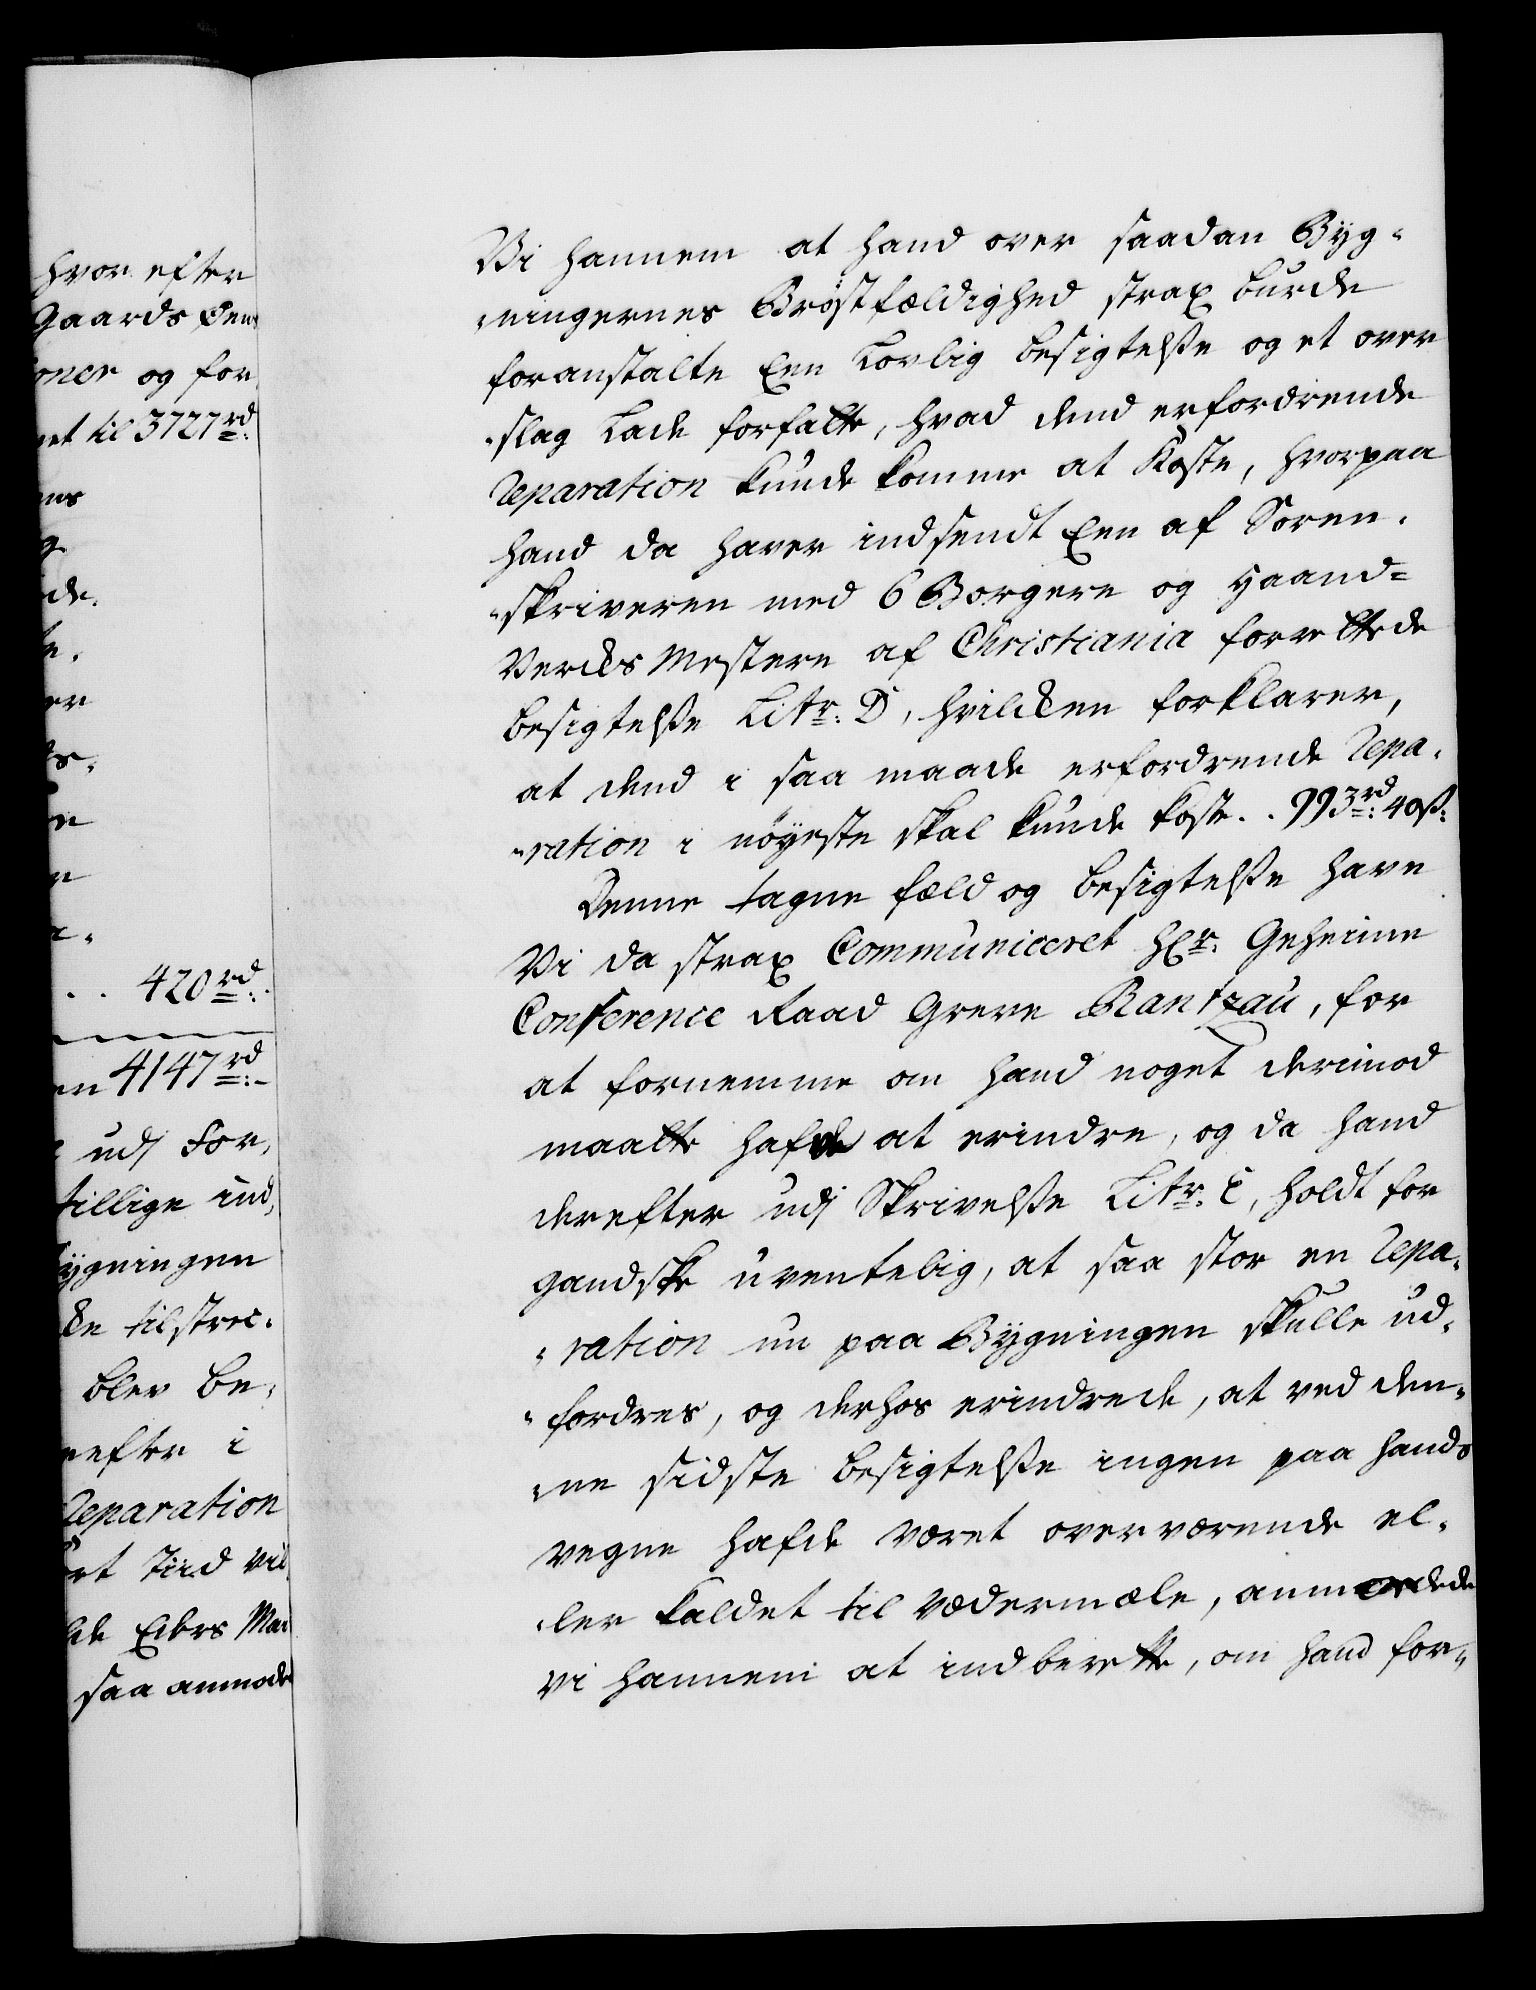 hvor efter
Gaards Øens
oner og for
et til 3727 rd:
420 rd:
en 4147 rd:
udj For,
tillige ind,
ygningen
ke tilstrec.
blev be,
efter i
Reparation
rt Tiid vil
saa anmode
Vi hannem at hand over saadan Byg-
ningernes Bröstfældighed strax burde
foranstalte Een Lovlig besigtelsse og et over
slag Lade forfatte, hvad dend erfordrende
Reparation kunde komme at Koste, hvorpaa
hand da haver indsendt Een af Soren-
skriveren med 6 Borgere og Haand=
Vercks Mestere af Christiania forrettede
besigtelsse Litr: D, hvilcken forklarer,
at dend i saa maade erfordrende Repa-
ration i nöyeste skal kunde koste. . 993 rd: 40 ß:
Denne tagne fæld og besigtelsse have
Vi da strax Communiceret Hr: Geheime
Conference Raad Greve Rantzau, for
at fornemme om hand noget derimod
maatte hafde at erindre, og da hand
derefter udj Skrivelsse Litr: E, holdt for
gandske uventelig, at saa stor en Repa-
ration nu paa Bygningen skulle ud-
fordres, og derhos erindrede, at ved den-
ne sidste besigtelsse ingen paa hands
vegne hafde været overværende el-
ler kaldet til vedermæle, anmodede
vi hannem at indberette, om hand for-